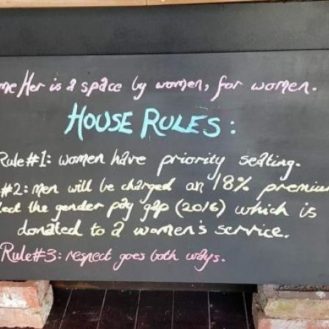 me Her is a space by women, for women.
HOUSE RULES:
Rule#1: women have priority seating.
#2: men will be charged an 18% premium
lect the gender pay gap (2016) which is
donated to a women's service.
Rule#3: respect goes both ways.